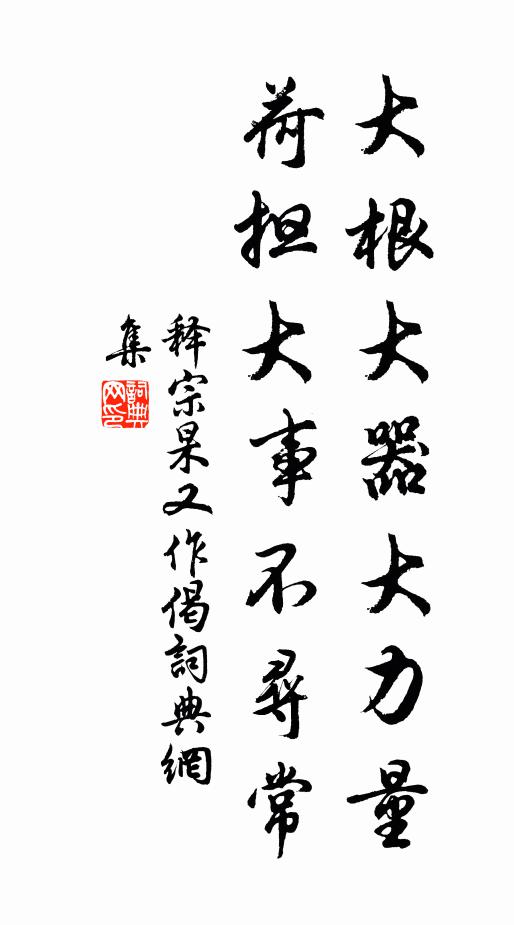 大根大器大力量
荷担大事不尋常
释宗杲又作偈詞典網
集
詞典網印